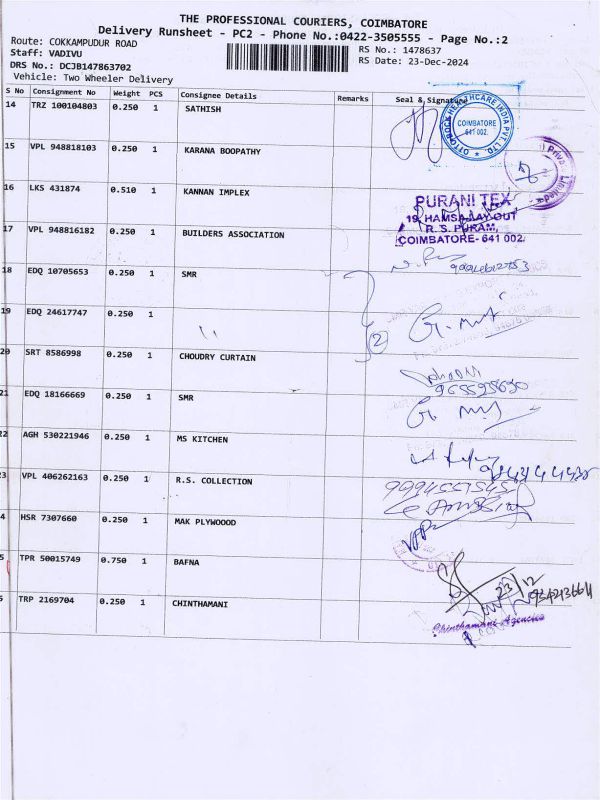 THE PROFESSIONAL COURIERS, COIMBATORE
Delivery Runsheet - PC2 - Phone No.:0422-3505555 - Page No.:2
Route: COKKAMPUDUR ROAD
RS No.: 1478637
Staff: VADIVU
RS Date: 23-Dec-2024
DRS No.: DCJB147863702
Vehicle: Two Wheeler Delivery
S No Consignment No Weight PCS Consignee Details Remarks Seal & Signature
14 TRZ 100104803 0.250 1 SATHISH
OTTOBOCK HEALTHCARE INDIA PVT. LTD.
COIMBATORE
641 002.
15 VPL 948818103 0.250 1 KARANA BOOPATHY
Private Limited
16 LKS 431874 0.510 1 KANNAN IMPLEX
PURANI TEX
19, HAMSA LAY OUT
R. S. PURAM,
COIMBATORE- 641 002.
17 VPL 948816182 0.250 1 BUILDERS ASSOCIATION
18 EDQ 10705653 0.250 1 SMR
19 EDQ 24617747 0.250 1
2
20 SRT 8586998 0.250 1 CHOUDRY CURTAIN
21 EDQ 18166669 0.250 1 SMR
22 AGH 530221946 0.250 1 MS KITCHEN
23 VPL 406262163 0.250 1 R.S. COLLECTION
4 HSR 7307660 0.250 1 MAK PLYWOOOD
5 TPR 50015749 0.750 1 BAFNA
23/12
TRP 2169704 0.250 1 CHINTHAMANI
Chinthamani Agencies